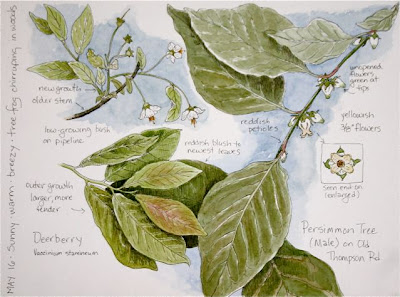 MAY 16 · Sunny · warm · breezy · tree frog chirruping in woods
new growth
older stem
low-growing bush
on pipeline
reddish blush to
newest leaves
outer growth
larger, more
tender
Deerberry
Vaccinium stamineum
unopened
flowers
green at
tips
reddish
petioles
yellowish
3/8" flowers
seen end-on
(enlarged)
Persimmon Tree
(Male) on Old
Thompson Rd